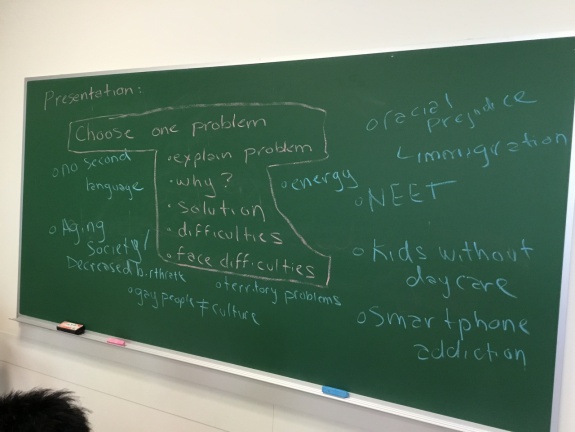 Presentation:
Choose one problem
• explain problem
• why?
• solution
• difficulties
• face difficulties
o no second
language
o Aging
Society/
Decreased birthrate
o gay people ≠ culture
o territory problems
o energy
o racial
prejudice
↳ immigration
o NEET
o Kids without
daycare
o Smartphone
addiction